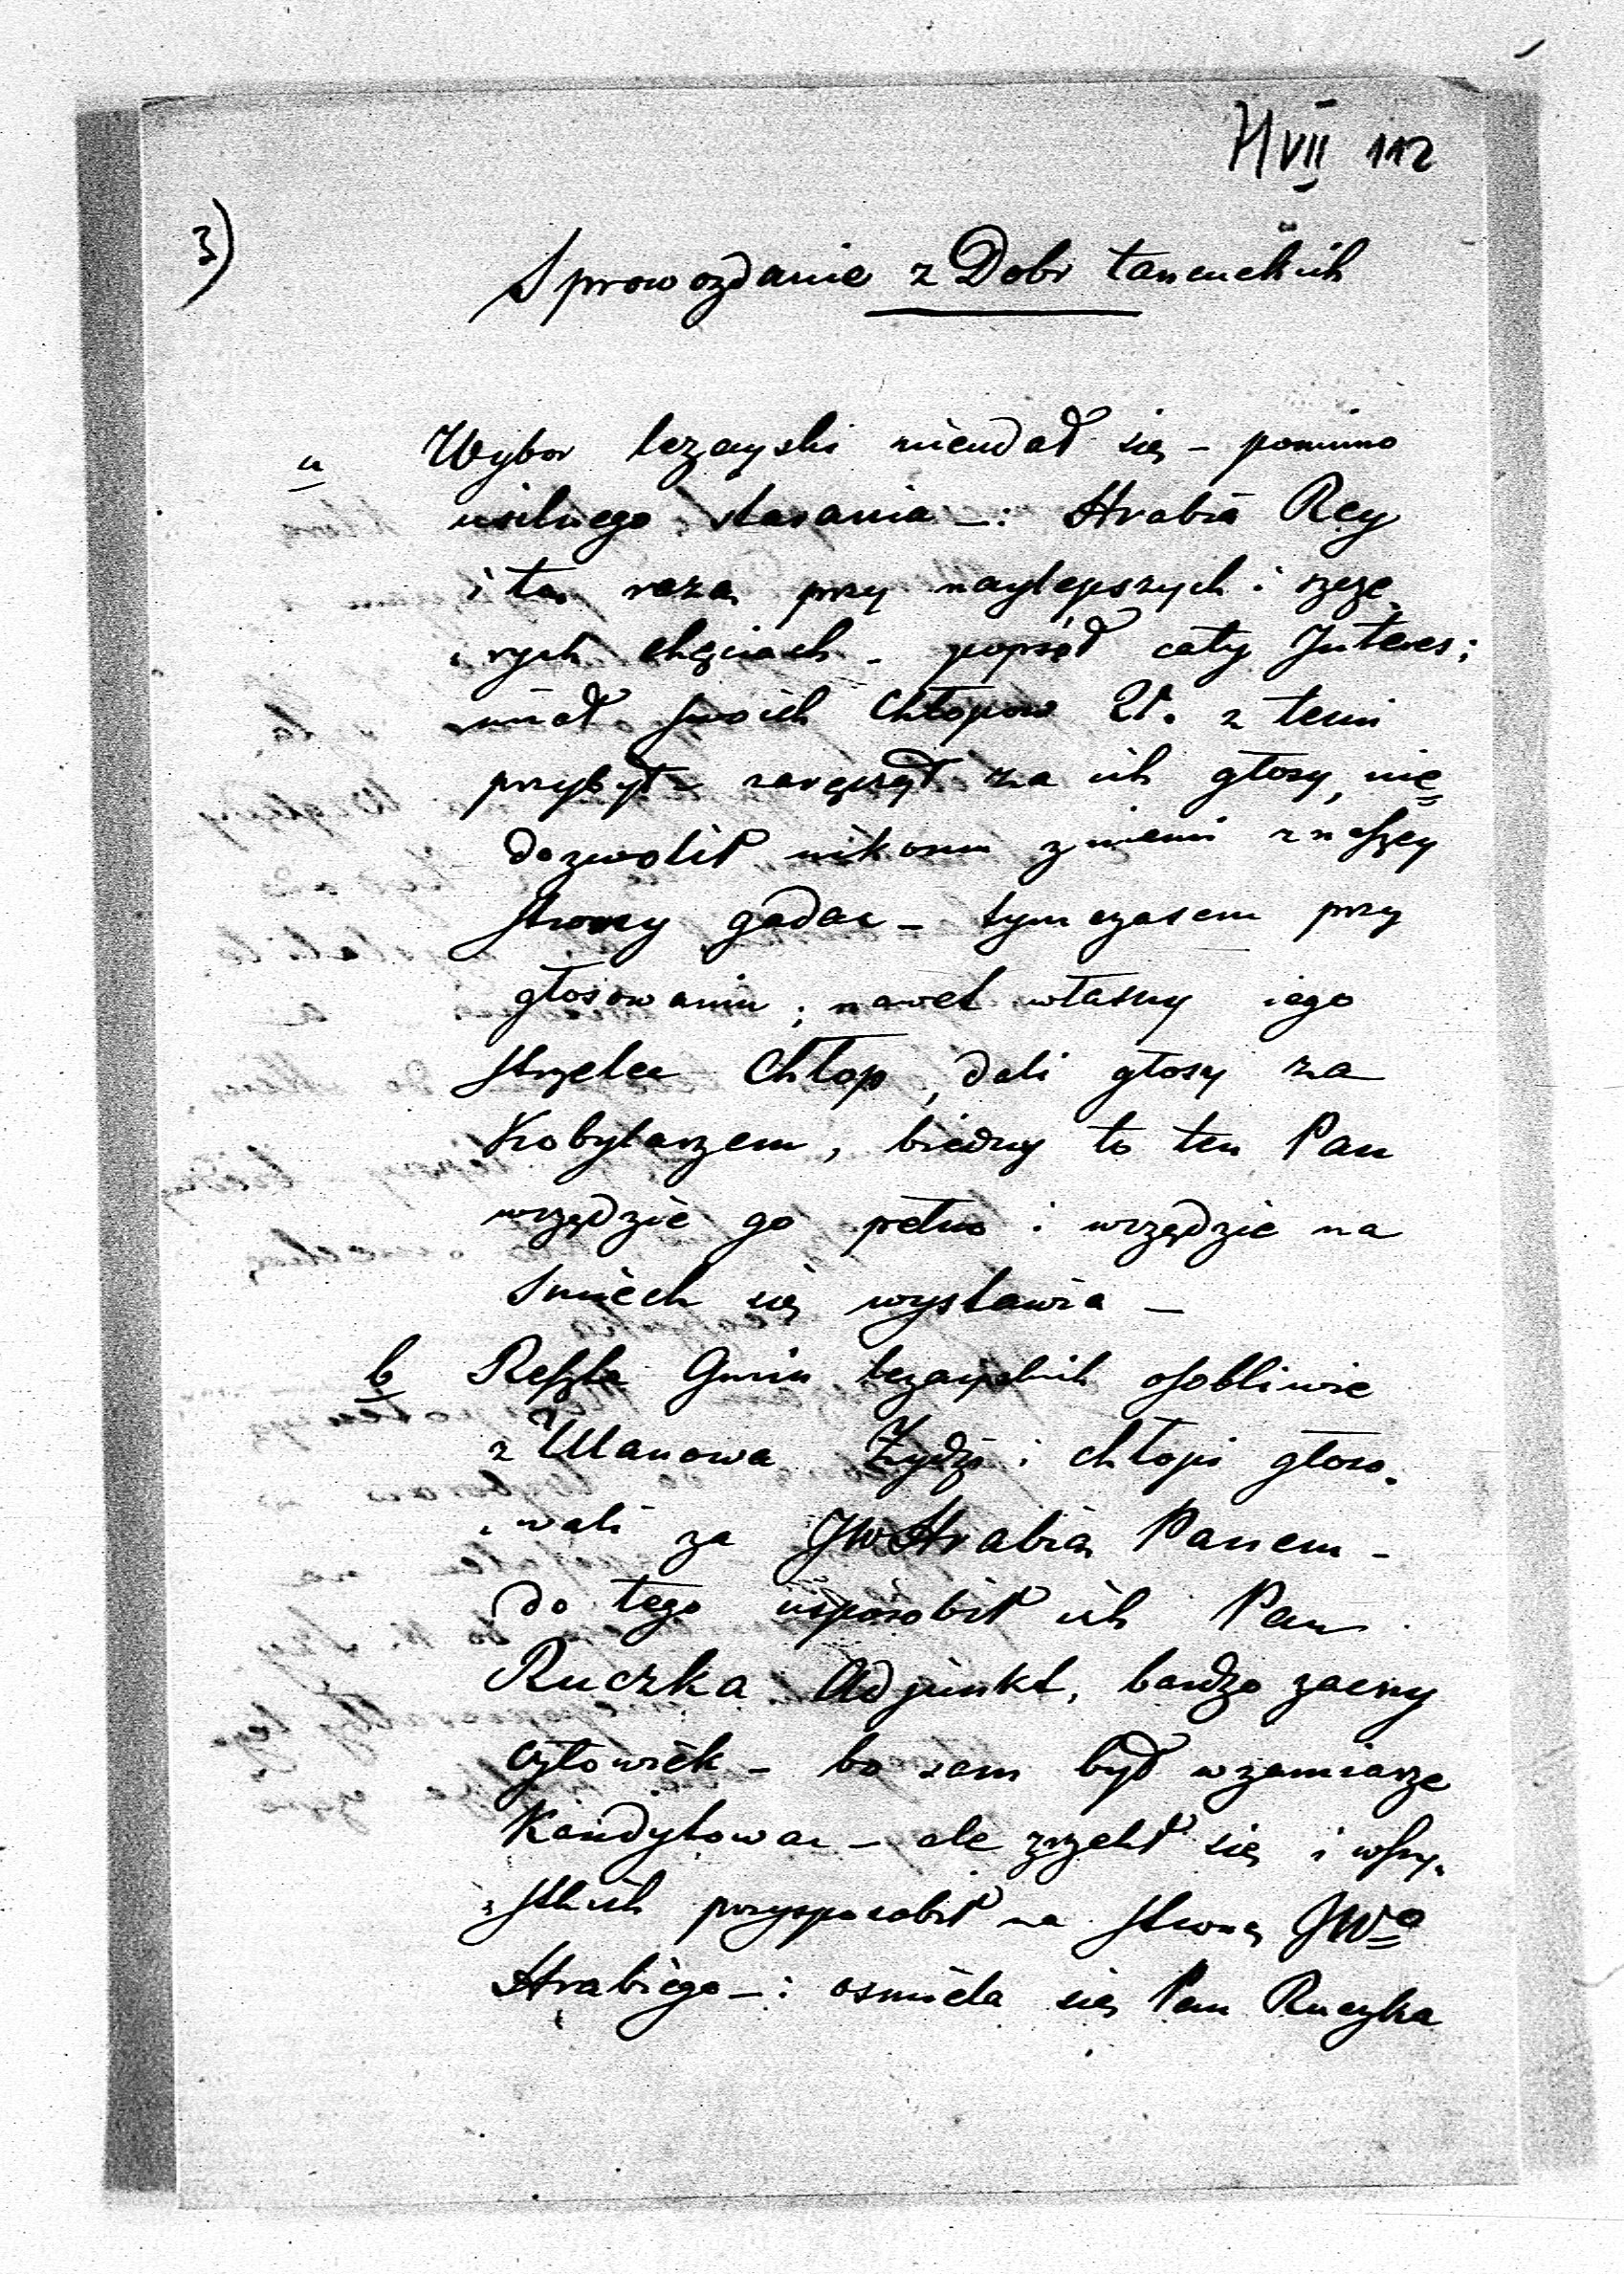 H VII 112
3)
Sprawozdanie z Dobr łancuckich
a Wybor leżayski nieudał się – pomimo
usilnego starania –: Hrabia Rey
i tą razą przy naylepszych i szcze„
„rych chęciach – popsół cały Interes;
miał swoich Chłopow 21. z temi
przybył – zaręczył za ich głosy, nie
dozwolił nikomu z niemi z naszey
strony gadac – tymczasem przy
głosowaniu; nawet własny iego
strzelec Chłop, dali głosy za
Kobylarzem, biedny to ten Pan
wszędzie go pełno i wszędzie na
smiech się wystawia –
b Reszta Gmin leżayskich osobliwie
z Ulanowa Żydzi i chłopi głoso„
„wali za JW Hrabią Panem –
do tego usposobił ich Pan
Ruczka Adjunkt, bardzo zacny
człowiek – bo sam był w zamiarze
Kandytowac – ale zrzekł się i wszy„
„stkich przysposobił na stronę JWo
Hrabiego –: osmiela się Pan Ruczka